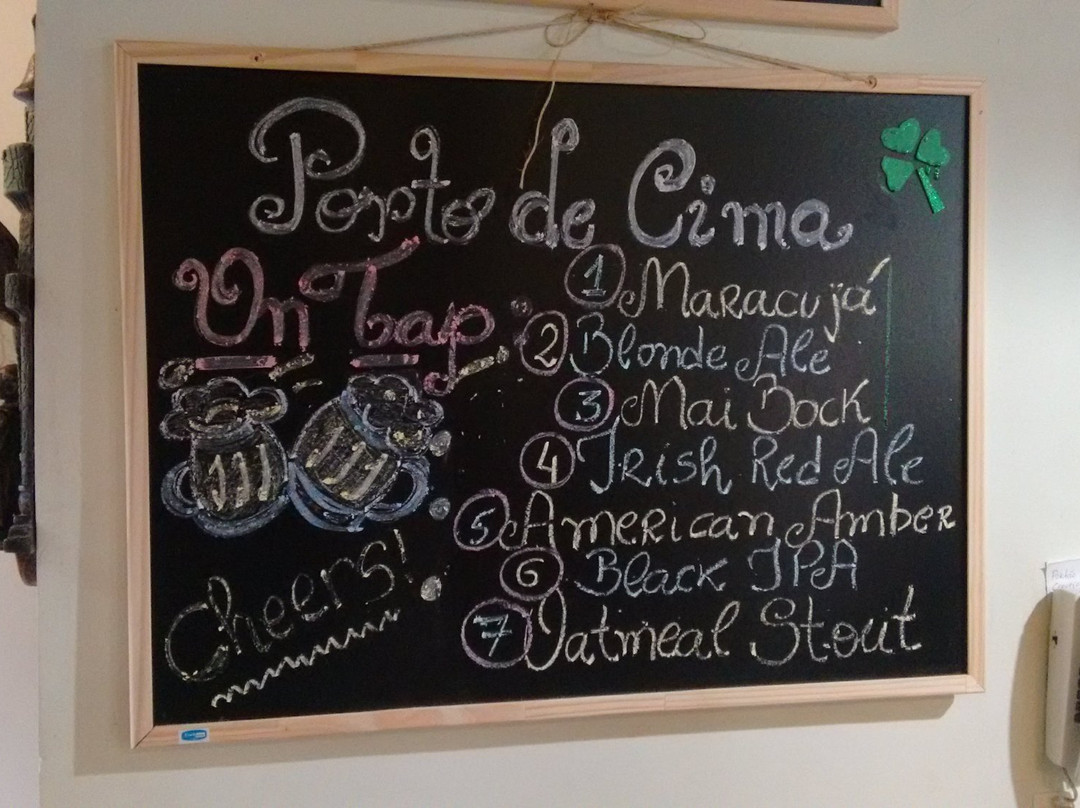 Porto de Cima
On Tap
1 Maracujá
2 Blonde Ale
3 Mai Bock
4 Irish Red Ale
5 American Amber
6 Black IPA
7 Oatmeal Stout
Cheers!